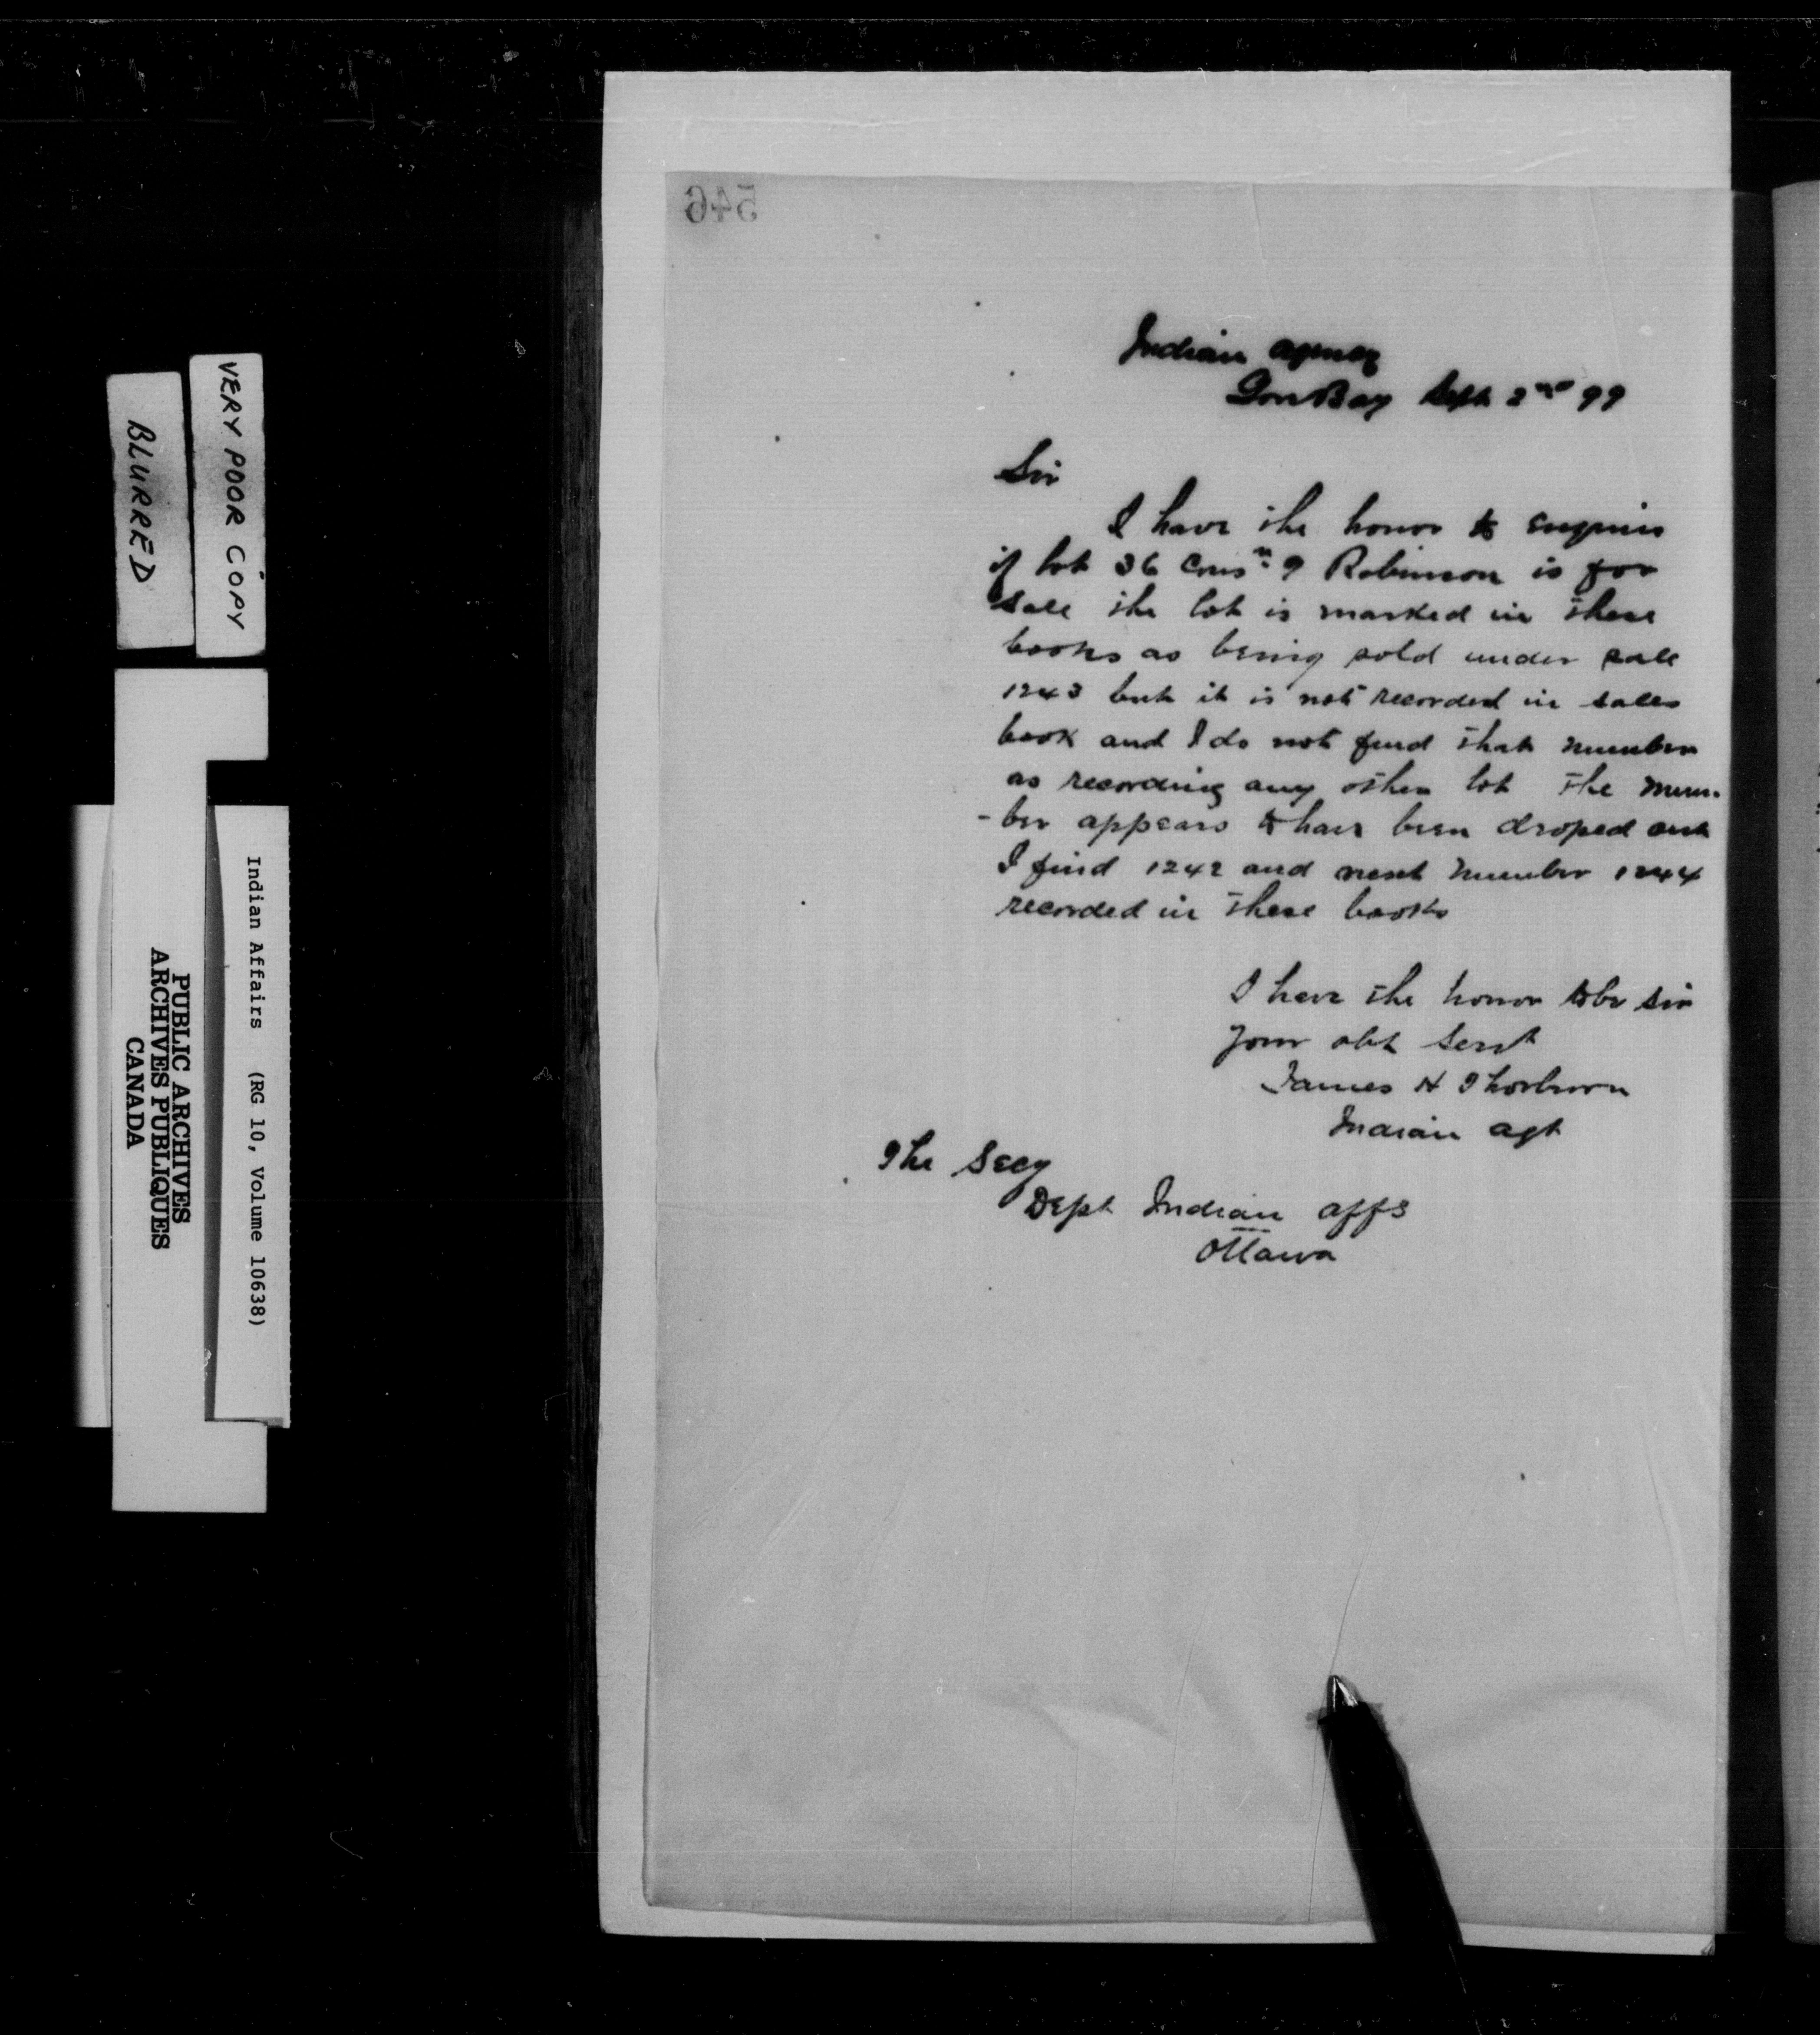 546
Indian Agency
Gore Bay Sept 2nd 99
Sir
I have the honor to enquire
if lot 36 Cons n 9 Robinson is for
sale the lot is marked in these
books as being sold under sale
1243 but it is not recorded in sales
book and I do not find that number
as recording any other lot The num-
-ber appears to have been droped out
I find 1242 and next number 1244
recorded in these books
I have the honor to be sir
your obt Servt
James H Thorburn
Indian agt
The Secy
Dept Indian affs
Ottawa
VERY POOR COPY
BLURRED
Indian Affairs (RG 10, Volume 10638)
PUBLIC ARCHIVES
ARCHIVES PUBLIQUES
CANADA